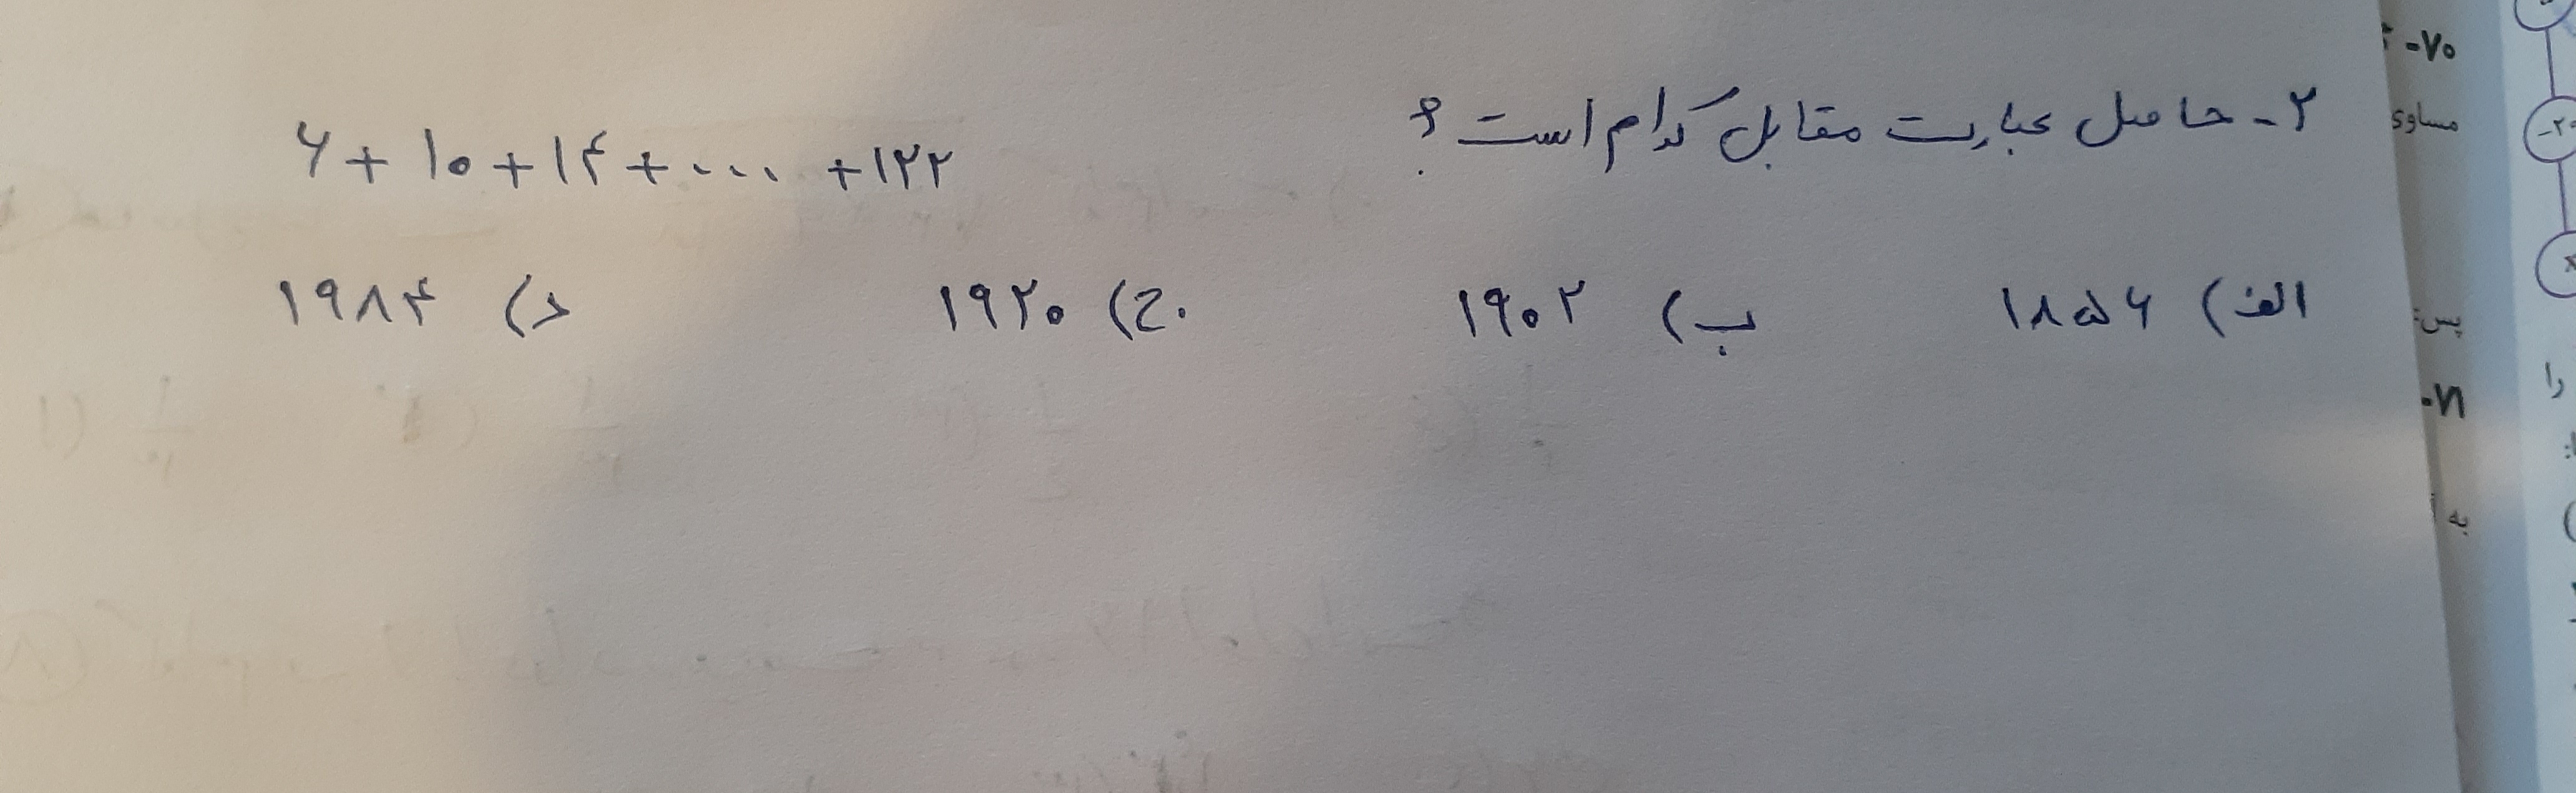 ۲- حاصل عبارت مقابل کدام است؟ ۶+۱۰+۱۴+...+۱۲۲
الف) ۱۸۵۶ ب) ۱۹۰۲ ج) ۱۹۲۰ د) ۱۹۸۴
۷۰-
مساوی
پس:
۷۱-
به
را